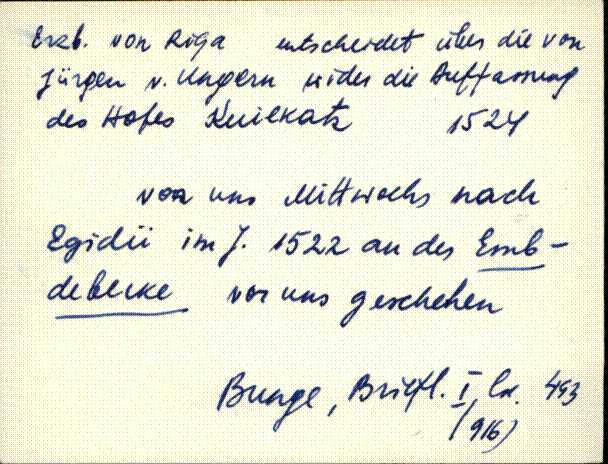 Erzb. von Riga entscheidet über die von
Jürgen v. Ungern wider die Auffassung
des Hofes Kuikatz 1524
vor uns Mittwochs nach
Egidii im J. 1522 an der Emb-
debecke vor uns geschehen
Bunge, Briefl. I, 493
(916)